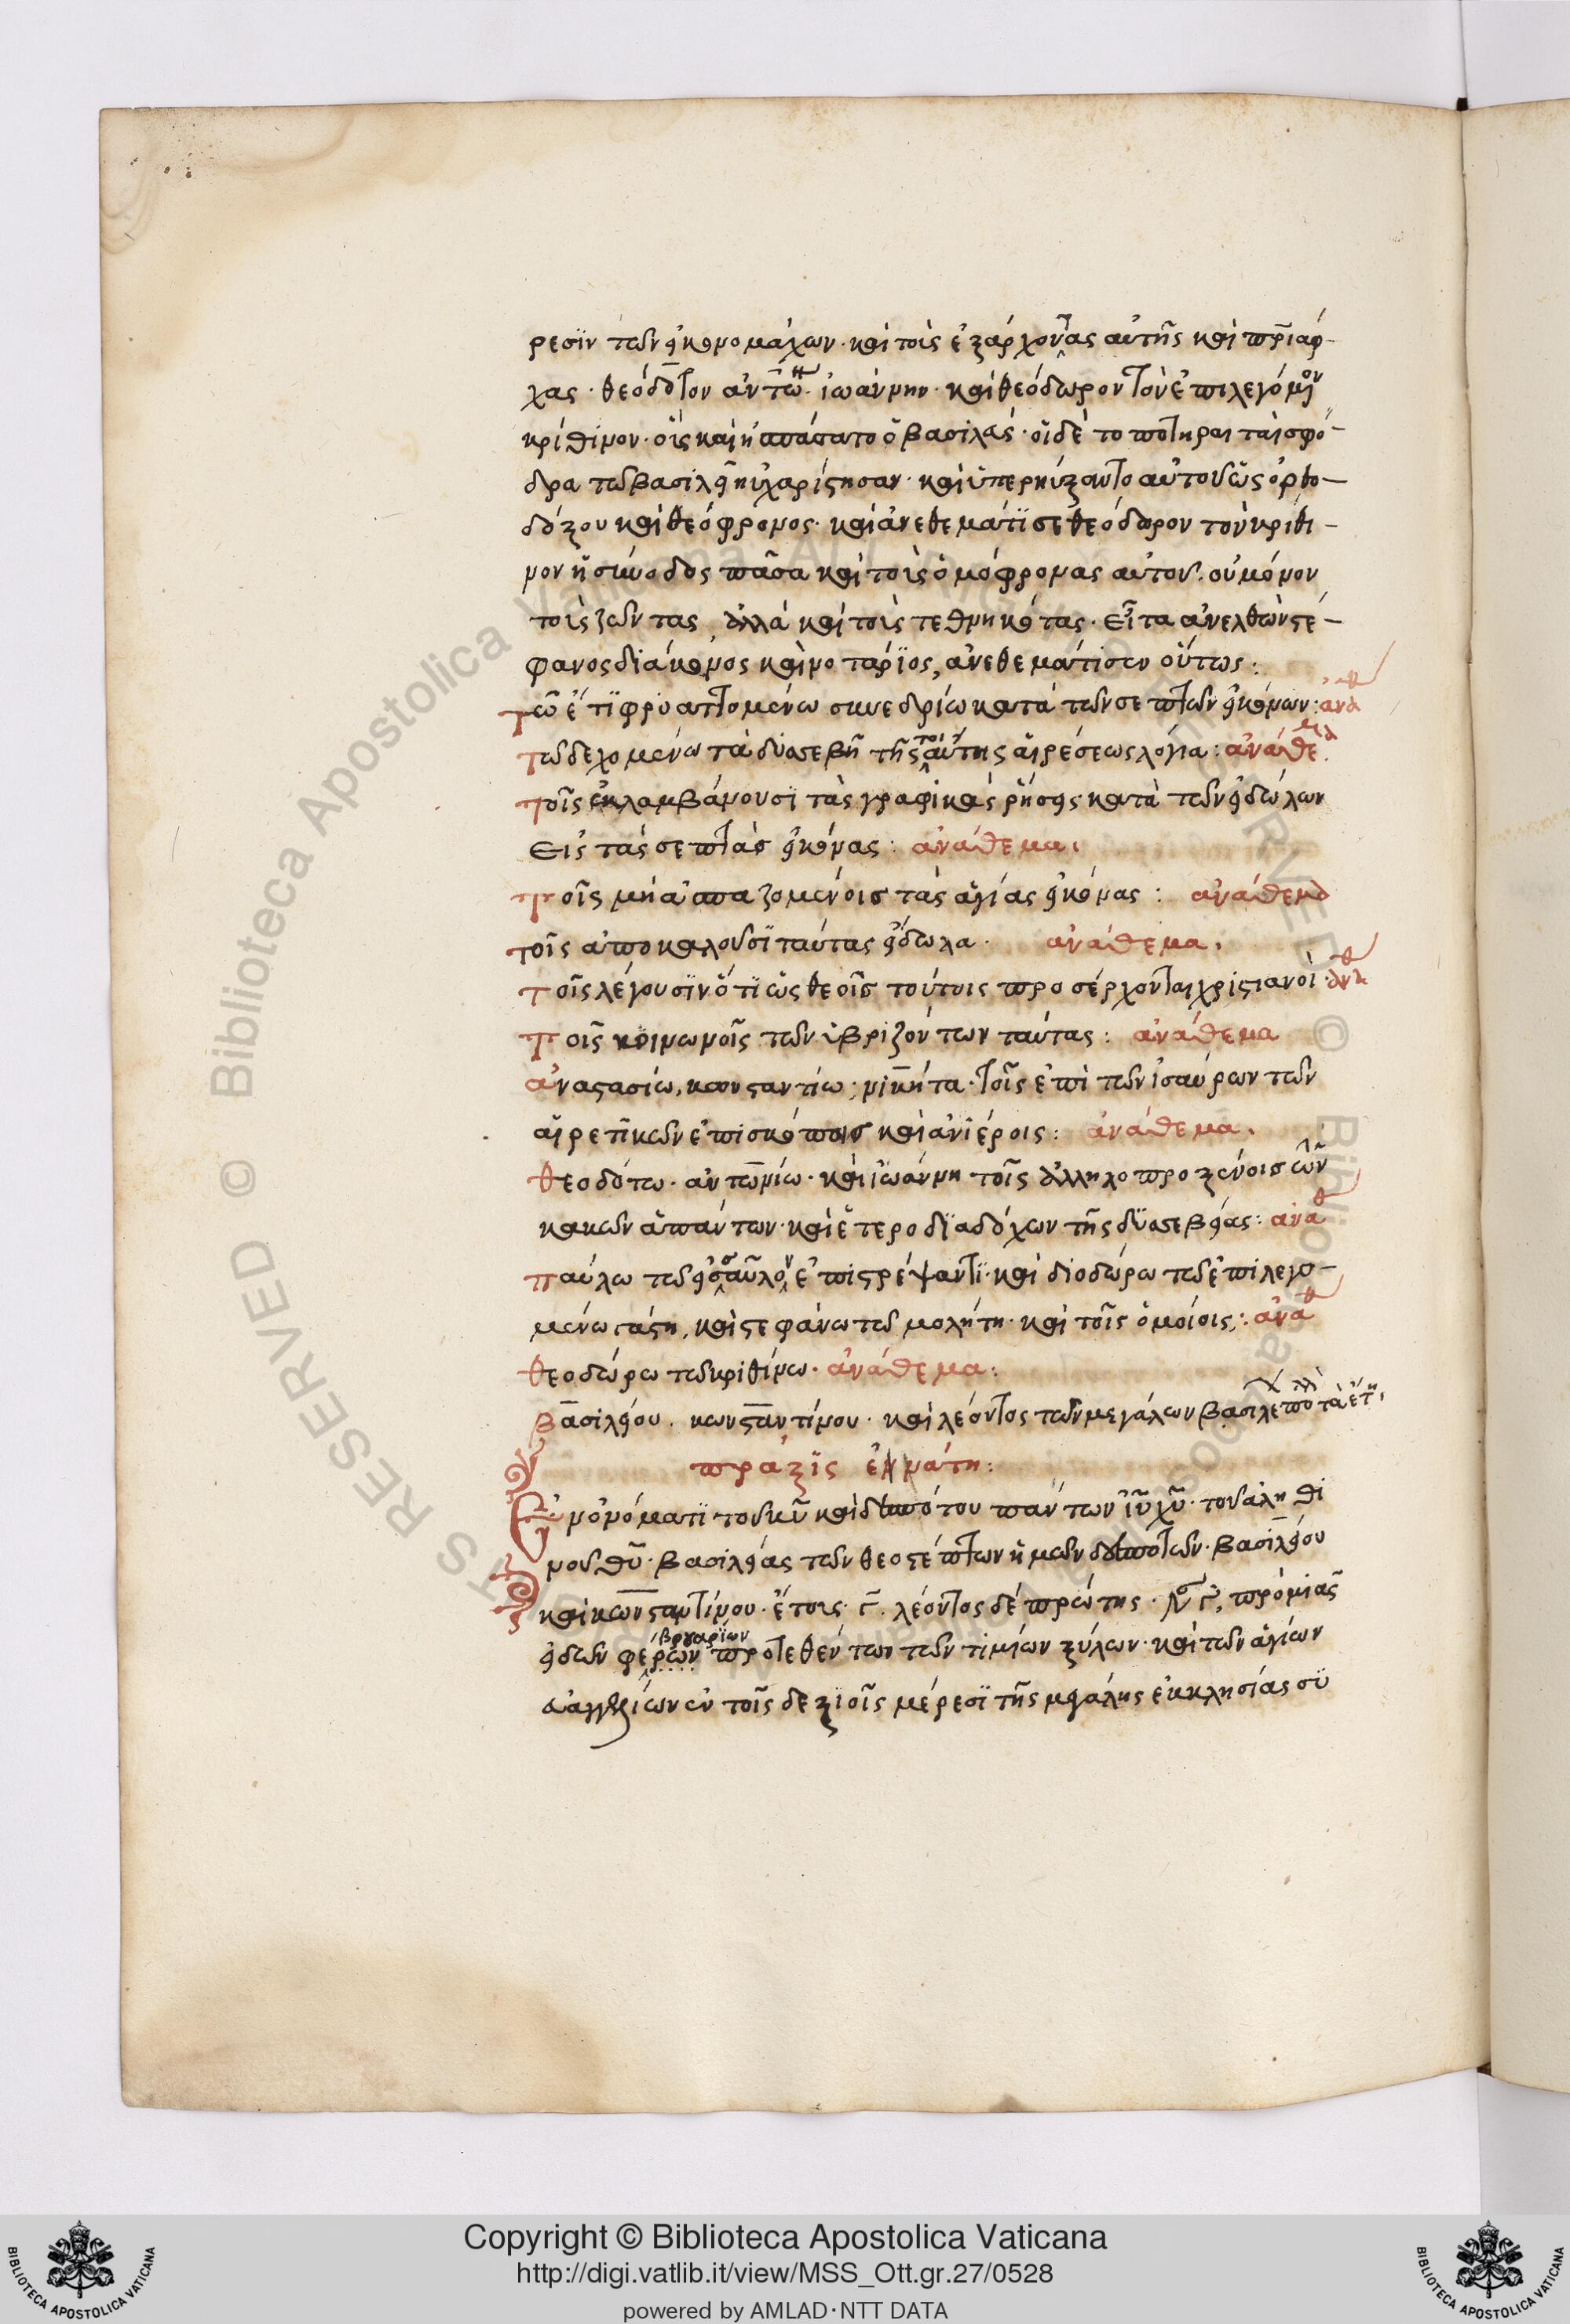 ρεσϊν τῶν εἰκονομάχων· καὶ τοὺς ἐξάρχοντας αὐτῆς καὶ πριάρ-
χας· θεόδοτον ἀντώ· ἰωάννην· καὶ θεόδωρον τὸν ἐπιλεγόμενον
κρίθινον· οὓς καὶ ἠσπάσατο ὁ βασιλεύς· οἱ δὲ τοποτηρηταὶ σφό-
δρα τῶ βασιλεῖ ηὐχαρίστησαν· καὶ ὑπερηύξαντο αὐτοῦ ὡς ὀρθο-
δόξου καὶ θεόφρονος· καὶ ἀνεθεμάτϊσε θεόδωρον τὸν κρίθι-
νον ἡ σύνοδος πᾶσα καὶ τοὺς ὁμόφρονας αὐτοῦ. οὐ μόνον
τοὺς ζῶντας, ἀλλὰ καὶ τοὺς τεθνηκότας· εἶτα ἀνελθὼν στέ-
φανος διάκονος καὶ νοτάρϊος, ἀνεθεμάτισεν οὕτως:
τῶ ἔτϊ φρυαττομένω συνεδρίω κατὰ τῶν σεπτῶν εἰκόνων: ἀνάθ
τῶ δεχομένω τὰ δυσσεβῆ τῆς τοιαύτης αἱρέσεως λόγια: ἀνάθεμα
τοῖς ἐκλαμβάνουσϊ τὰς γραφικὰς ῥήσεις κατὰ τῶν εἰδώλων
εἰς τὰς σεπτὰς εἰκόνας: ἀνάθεμα.
τοῖς μὴ ἀσπαζομένοις τὰς ἁγίας εἰκόνας: ἀνάθεμα
τοῖς ἀποκαλοῦσϊ ταύτας εἴδωλα· ἀνάθεμα.
τοῖς λέγουσϊν ὅτϊ ὡς θεοῖς τούτοις προσέρχονται χριστιανοὶ· ἀνάθ
τοῖς κοινωνοῖς τῶν ὑβριζόντων ταύτας: ἀνάθεμα
ἀναστασίω, κωνσταντίω, νικήτα· τοῖς ἐπὶ τῶν ἰσαύρων τῶν
αἱρετικῶν ἐπισκόποις καὶ ἀνιέροις: ἀνάθεμα.
θεοδότω· ἀντωνίω· καὶ ἰωάννη τοῖς ἀλληλοπροξένοις τῶν
κακῶν ἁπάντων· καὶ ἑτεροδϊαδόχων τῆς δυσσεβείας: ἀνάθ
παύλω τῶ εἰς σαῦλον ἐπιστρέψαντϊ· καὶ διοδώρω τῶ ἐπιλεγο-
μένω γάστη, καὶ στεφάνω τῶ μολήτη· καὶ τοῖς ὁμοίοις: ἀνάθ
θεοδώρω τῶ κριθίνω· ἀνάθεμα:
βασιλείου. κωνσταντίνου. καὶ λέοντος τῶν μεγάλων βασιλέ πολλὰ τὰ ἔτη.
πράξις ἐννάτη:
ἐν ὀνόματϊ τοῦ κυ καὶ δεσπότου πάντων ιυ χυ· τοῦ ἀληθι
νοῦ θυ· βασιλείας τῶν θεοστέπτων ἡμῶν δεσποτῶν· βασιλείου
καὶ κωνσταντίνου· ἔτους γ. λέοντος δὲ πρώτης· ἰνδ γ, πρὸ μιᾶς
εἰδῶν φεβρουαρίων προτεθέντων τῶν τιμίων ξύλων· καὶ τῶν ἁγίων
εὐαγγελίων ἐν τοῖς δεξϊοῖς μέρεσϊ τῆς μεγάλης ἐκκλησίας σϋ
Copyright © Biblioteca Apostolica Vaticana
http://digi.vatlib.it/view/MSS_Ott.gr.27/0528
powered by AMLAD·NTT DATA
BIBLIOTECA APOSTOLICA VATICANA
BIBLIOTECA APOSTOLICA VATICANA